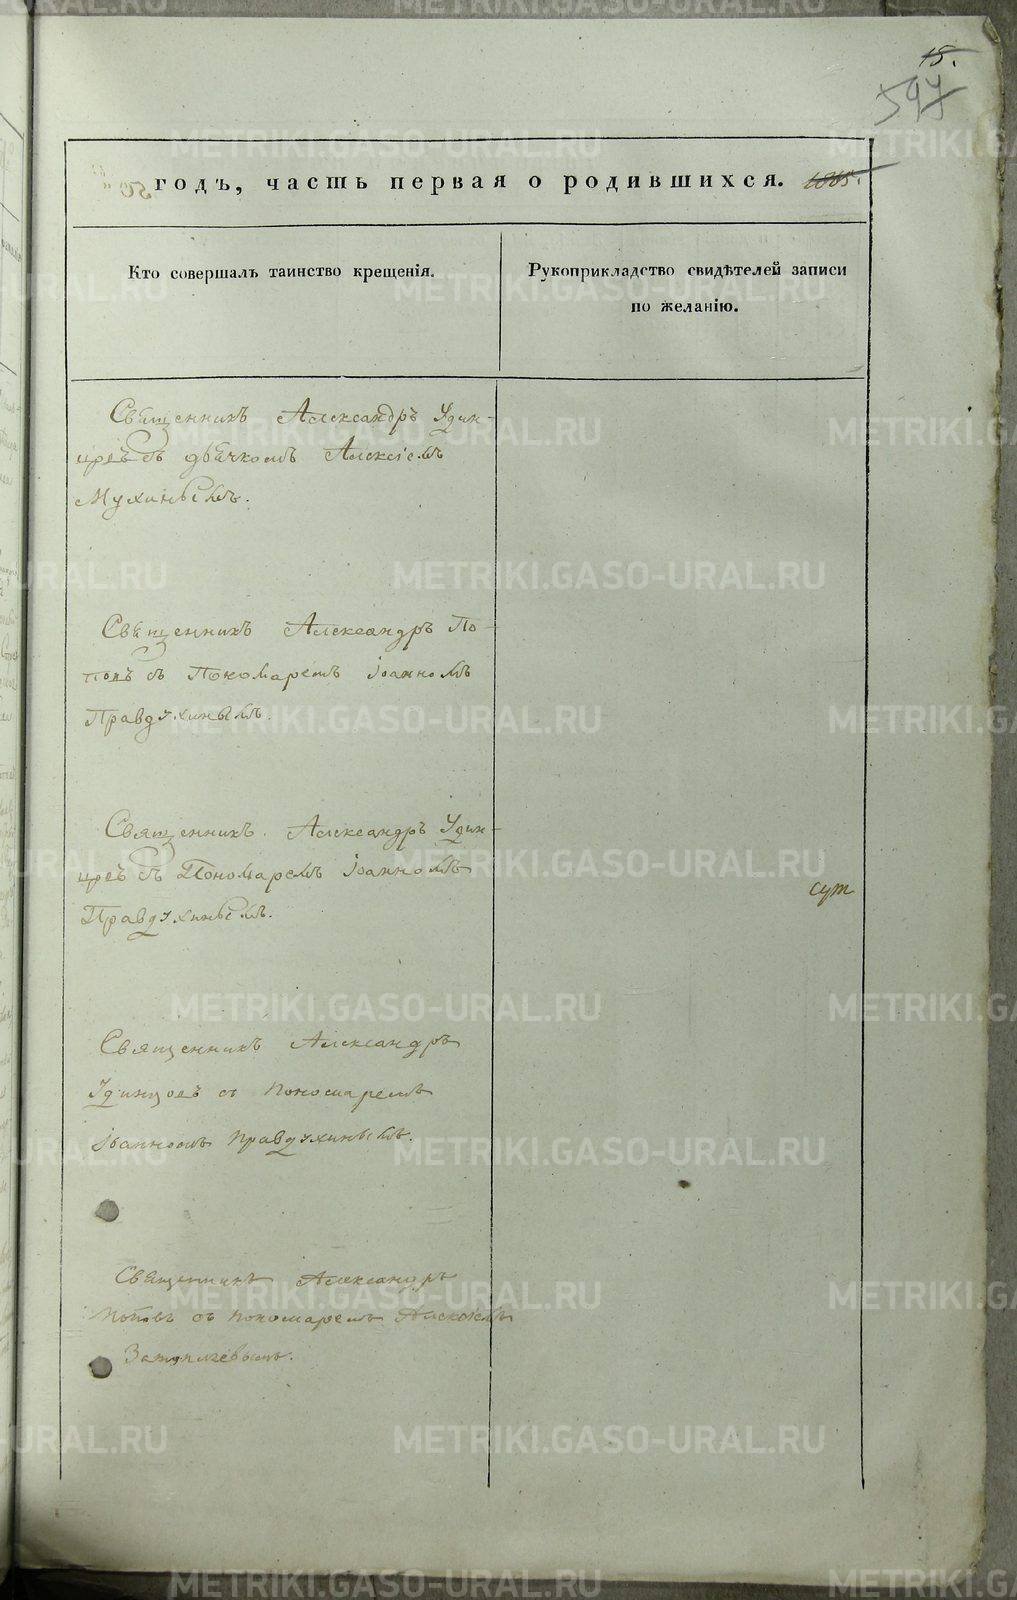 15.
597
годъ, часть первая о родившихся. 1865.
Кто совершалъ таинство крещенія.
Рукоприкладство свидѣтелей записи
по желанію.
Священникъ Александръ Удин-
цовъ съ дьячкомъ Алексіемъ
Мухинымъ.
Священникъ Александръ По-
повъ съ Пономаремъ Іоанномъ
Правдухинымъ.
Священникъ Александръ Удин-
цовъ съ Пономаремъ Іоанномъ
Правдухинымъ.
сут
Священникъ Александръ
Удинцовъ съ пономаремъ
Іоанномъ Правдухинымъ.
Священникъ Александръ
Поповъ съ пономаремъ Алексіемъ
METRIKI.GASO-URAL.RU